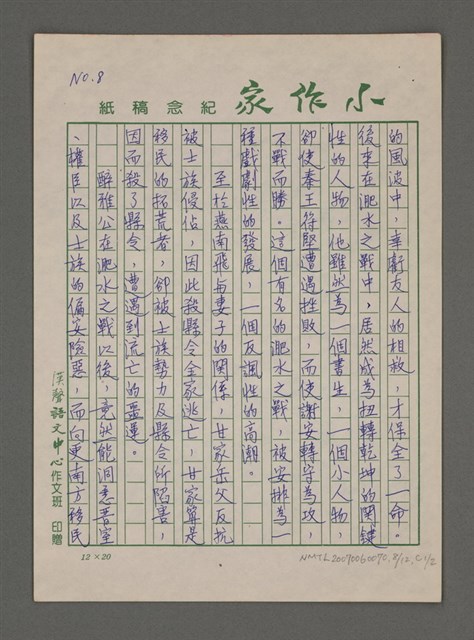 NO.8
小作家
紀念稿紙
的風波中，幸虧友人的相救，才保全了一命。
後來在淝水之戰中，居然成為扭轉乾坤的関鍵
性的人物，他雖然為一個書生，一個小人物，
卻使秦王苻堅遭遇挫敗，而使謝安轉守為攻，
不戰而勝。這個有名的淝水之戰，被安排為一
種戲劇性的發展，一個反諷性的高潮。
至於燕南飛与妻子的関係，甘家岳父反抗
被士族侵佔，因此殺縣令全家逃亡，甘家算是
移民的拓荒者，卻被士族勢力及縣令所陷害，
因而殺了縣令，遭遇到流亡的噩運。
醉雅公在淝水之戰以後，竟然能洞悉晋室
、權臣以及士族的偏安險惡，而向更南方移民
漢聲語文中心作文班 印贈
12×20
NMTL20070060070. 8/12, C1/2